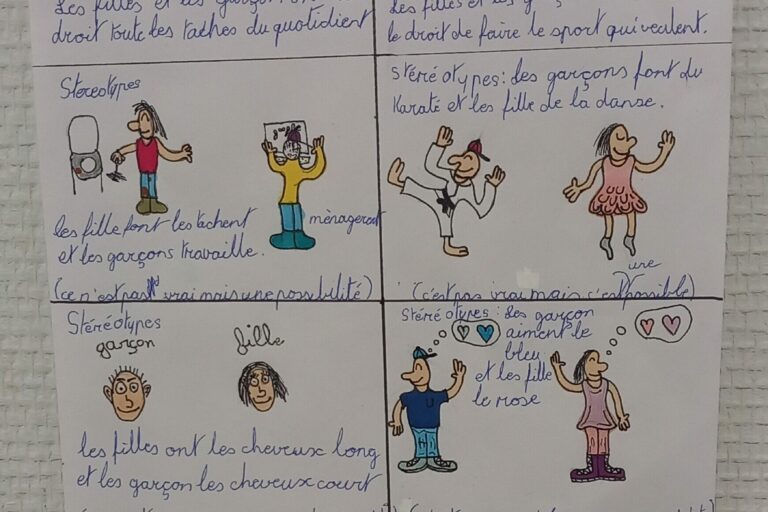 Les filles et les garçon ont le
droit toute les taches du quotidient
Les filles et les g
le droit de faire le sport qui veulent.
Stereotypes
les fille font les tachent ménagerent
et les garçons travaille.
(ce n'est pas vrai mais une possibilité)
Stéréotypes: des garçons font du
Karaté et les fille de la danse.
(c'est pas vrai mais c'est une possible)
Stéréotypes
garçon fille
les filles ont les cheveux long
et les garçon les cheveux court
Stéréotypes: Les garçon
aiment le
bleu
et les fille
le rose